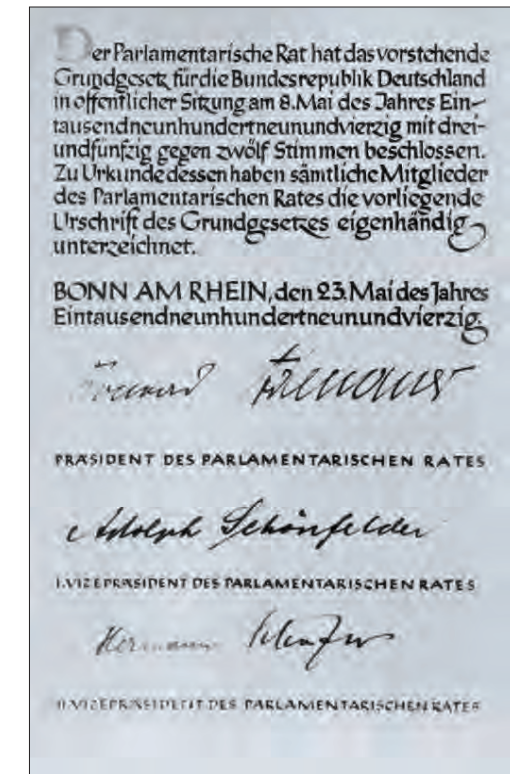 Der Parlamentarische Rat hat das vorstehende
Grundgesetz für die Bundesrepublik Deutschland
in öffentlicher Sitzung am 8. Mai des Jahres Ein-
tausendneunhundertneunundvierzig mit drei-
undfünfzig gegen zwölf Stimmen beschlossen.
Zu Urkunde dessen haben sämtliche Mitglieder
des Parlamentarischen Rates die vorliegende
Urschrift des Grundgesetzes eigenhändig
unterzeichnet.
BONN AM RHEIN, den 23. Mai des Jahres
Eintausendneunhundertneunundvierzig.
PRÄSIDENT DES PARLAMENTARISCHEN RATES
Adolph Schönfelder
I. VIZEPRÄSIDENT DES PARLAMENTARISCHEN RATES
Hermann Schäfer
II. VIZEPRÄSIDENT DES PARLAMENTARISCHEN RATES